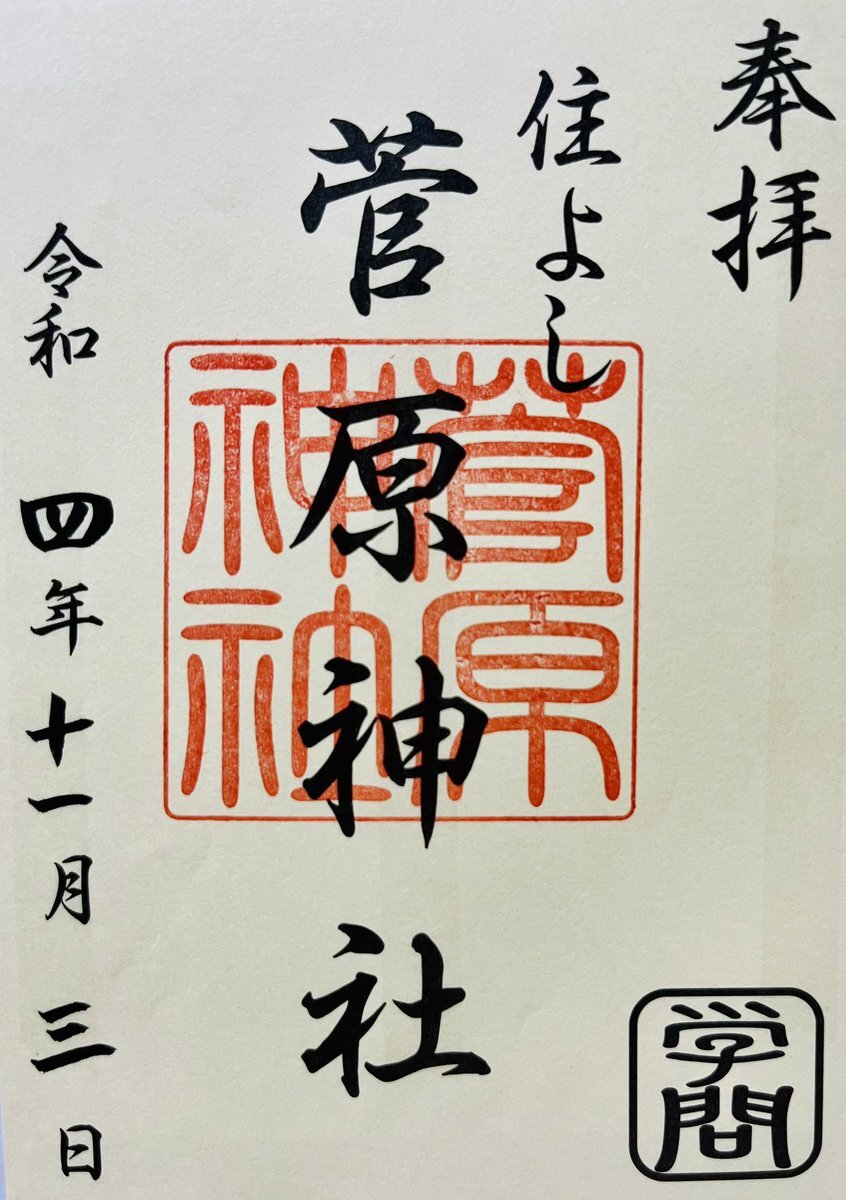 奉拝
住よし
菅原神社
菅原神社
令和四年十一月三日
学問